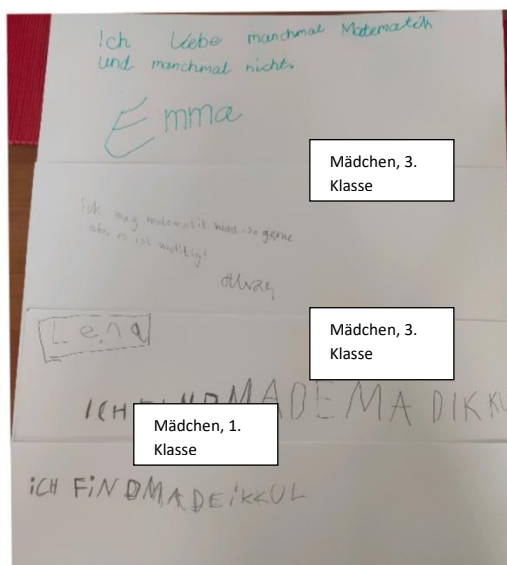 Ich Liebe manchmal Matematik
und manchmal nicht.
Emma
Mädchen, 3.
Klasse
Ich mag matematik so gerne
aber es ist wichtig!
Lena
Mädchen, 3.
Klasse
ICH MADEMADIKKU
Mädchen, 1.
Klasse
ICH FINDMADEIKKUL